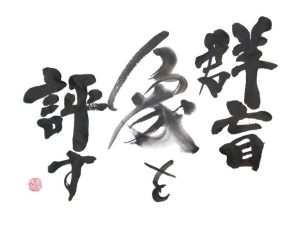 群盲
象を
評す